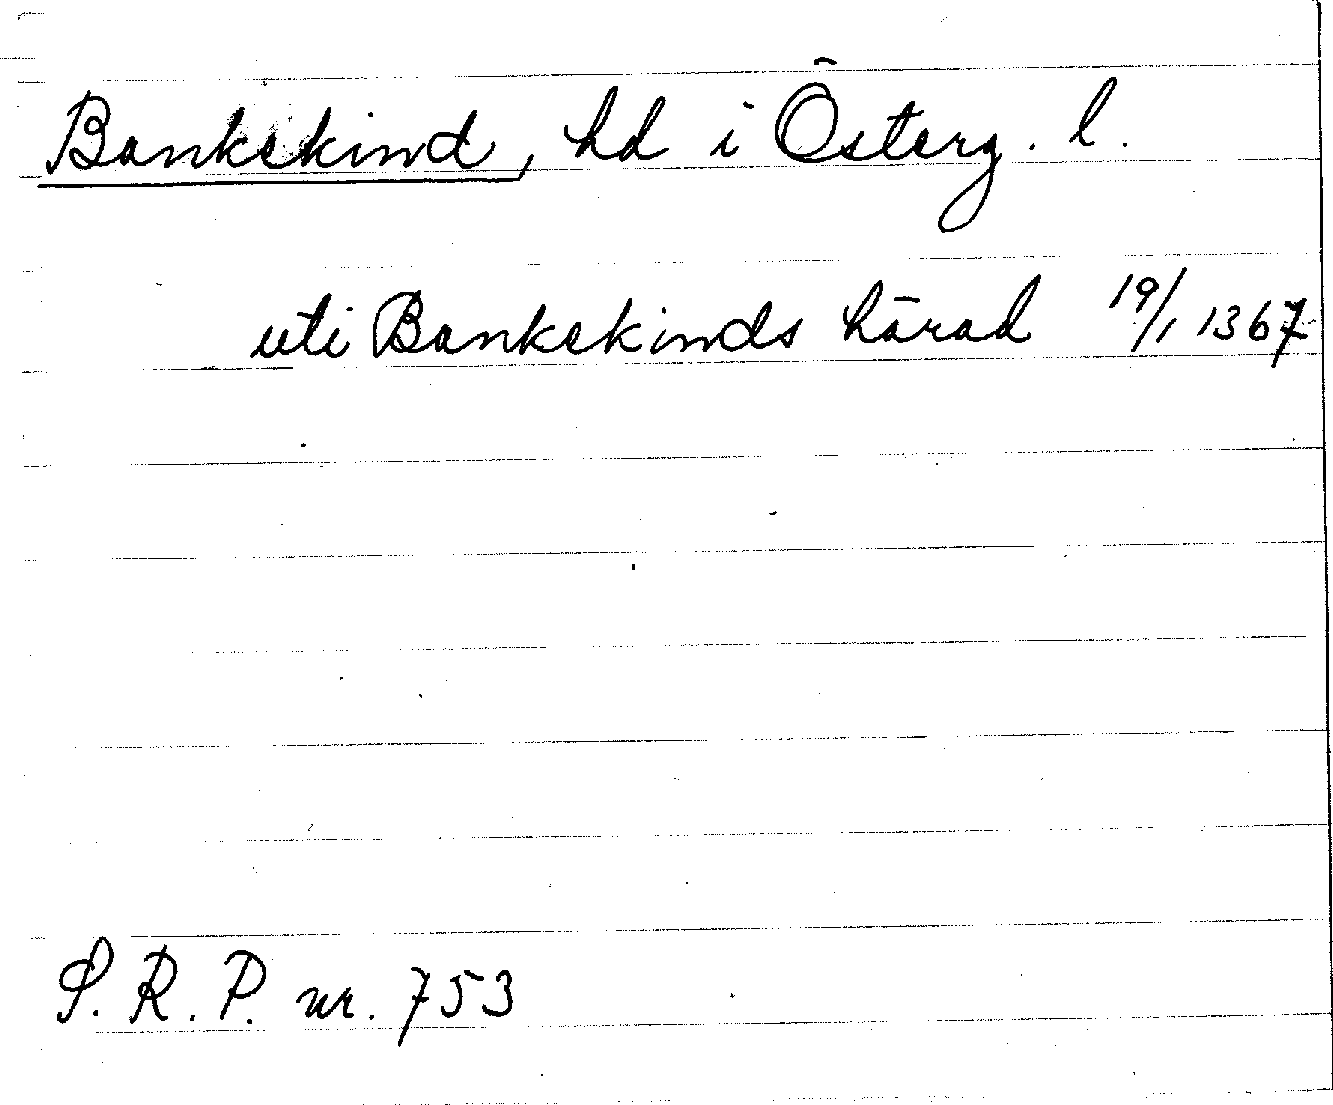 Bankekind, hd i Österg. l.
uti Bankekinds härad 19/1 1367
S. R. P. nr. 753